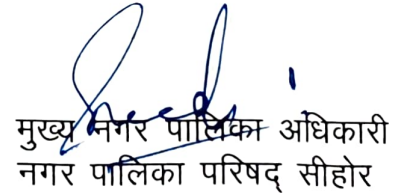 मुख्य नगर पालिका अधिकारी
नगर पालिका परिषद् सीहोर